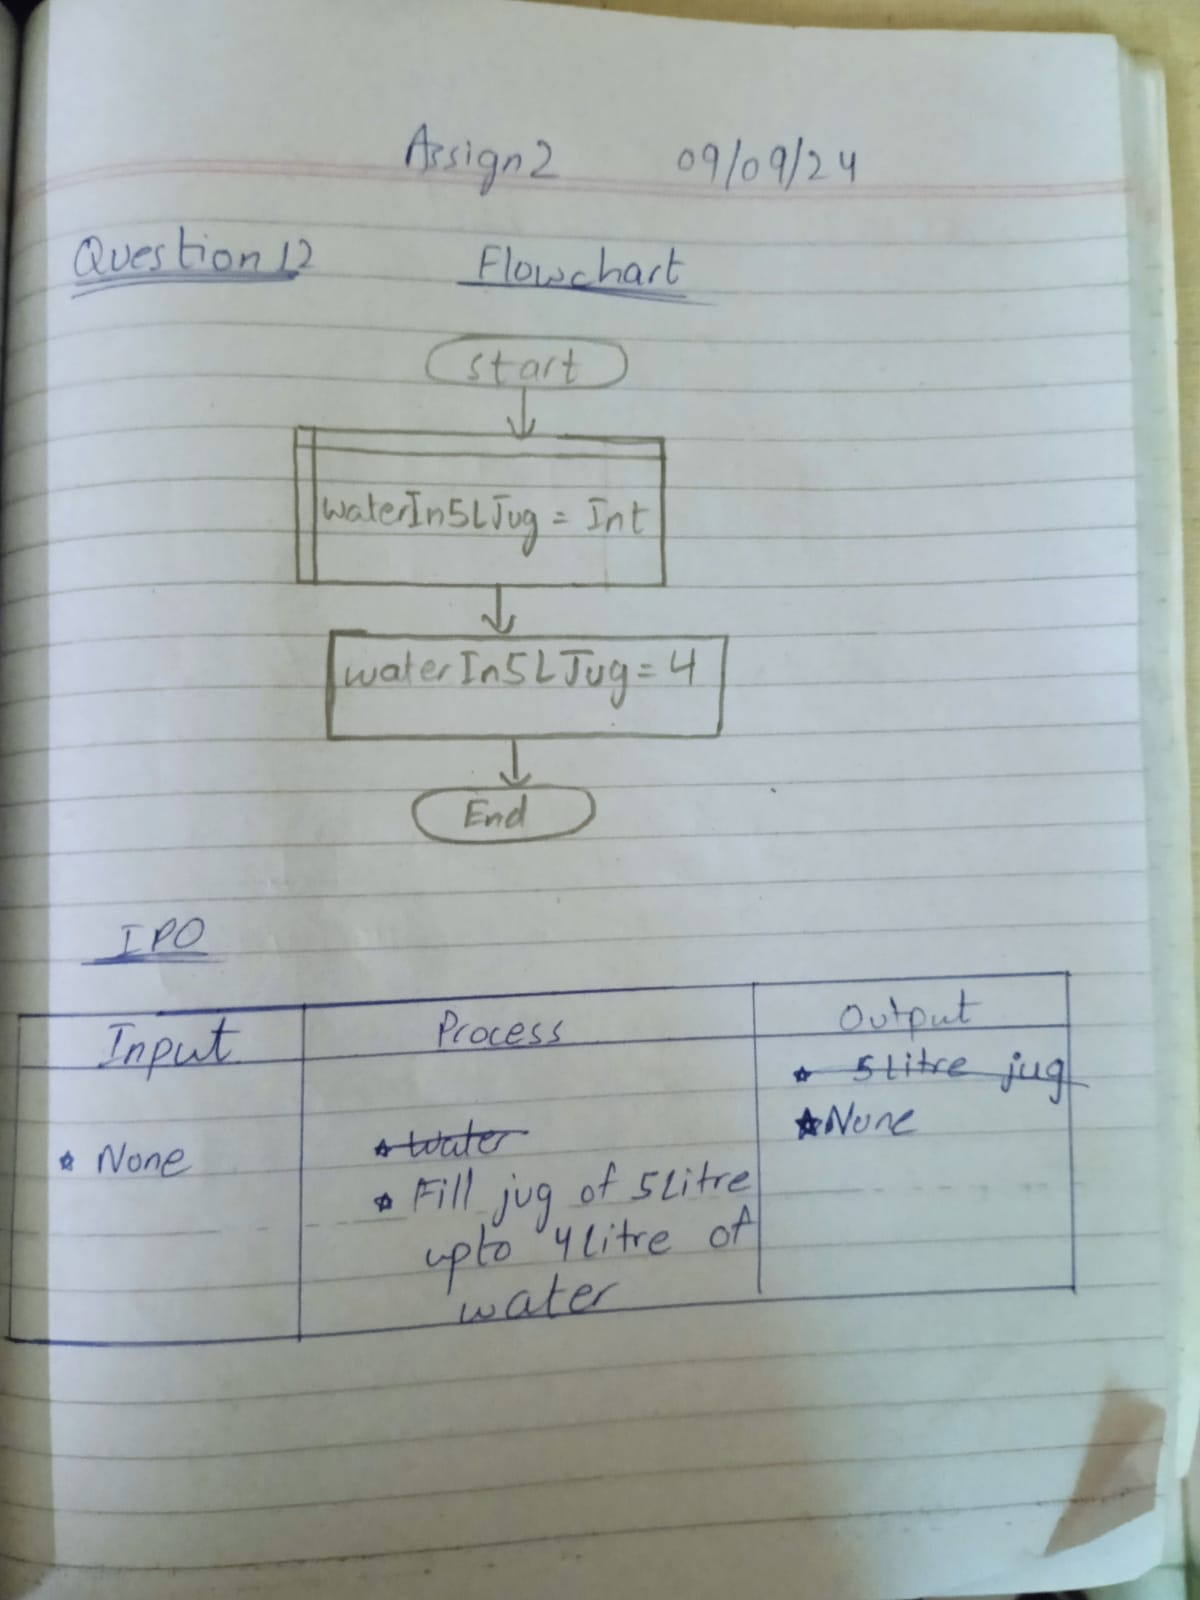 Assign 2 09/09/24
Question 12 Flowchart
start
waterIn5LJug = Int
waterIn5LJug = 4
End
IPO
Input Process Output
5 Litre jug
None
None
Water
Fill jug of 5 Litre
upto 4 Litre of
water